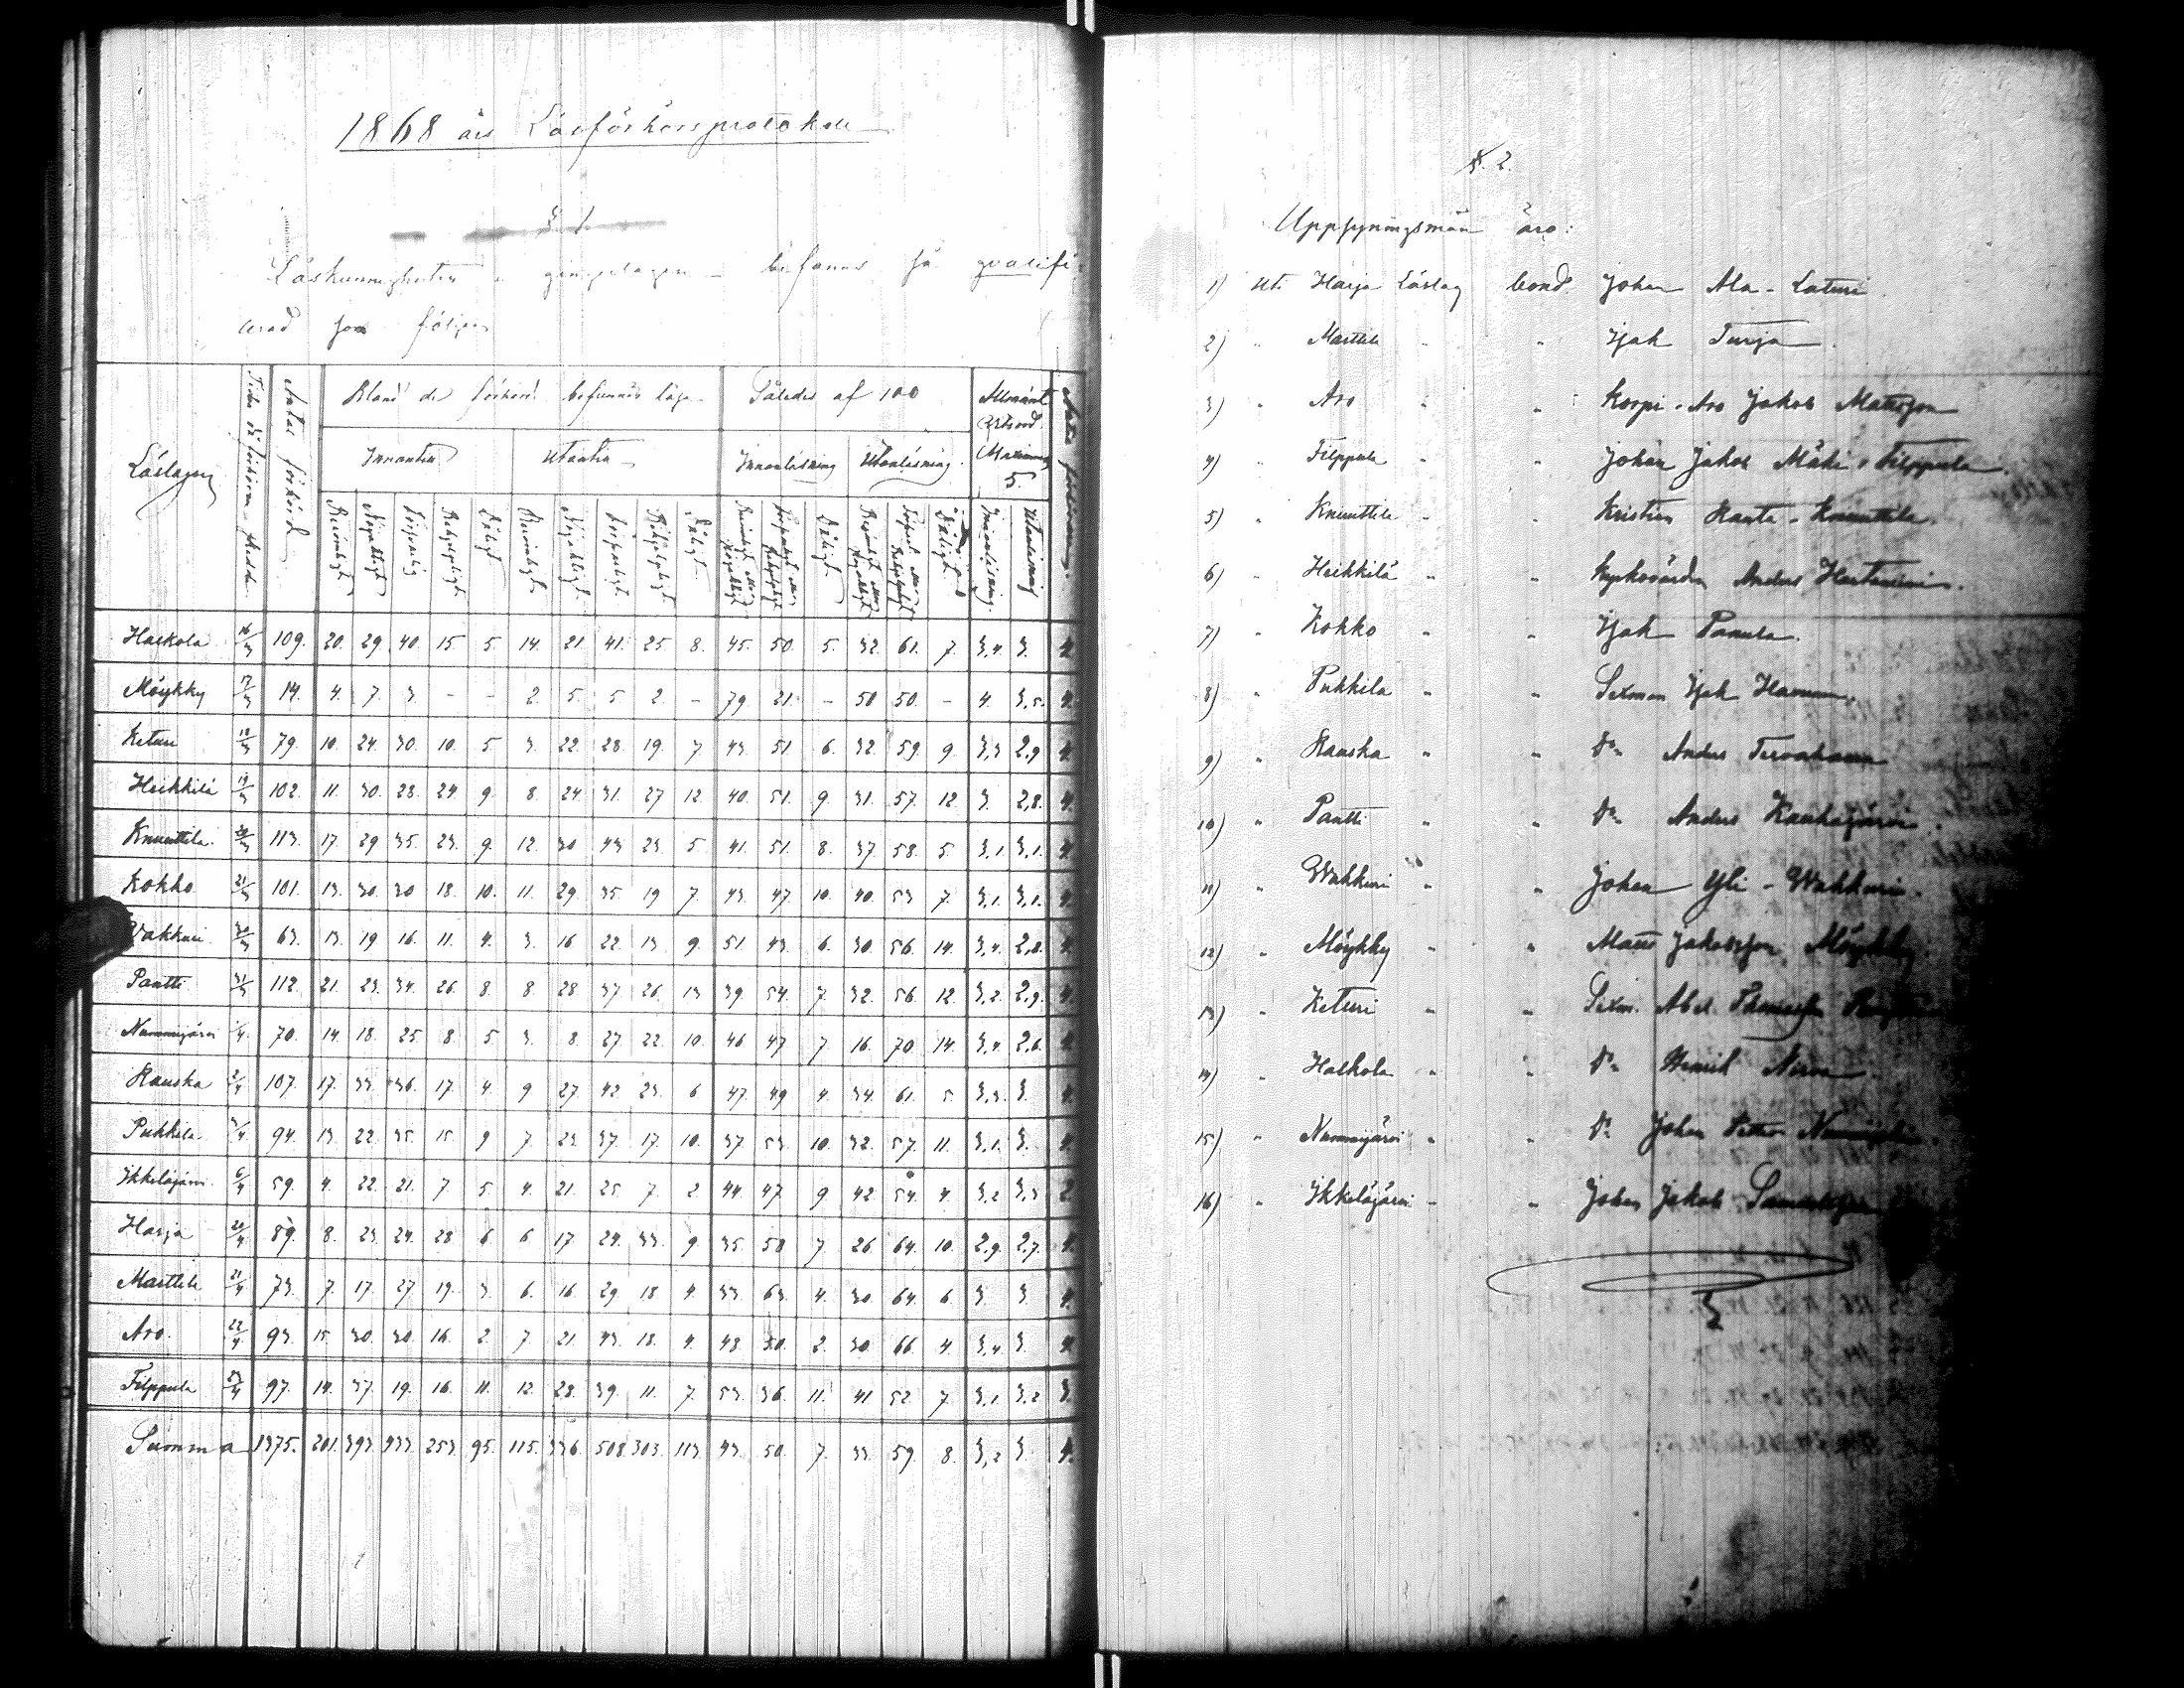 1868 års Läsförhörsprotokoll
§ 1.
Läskunnigheten i befanns så qvalifi-
cerad som följer
Läslagen
Antal förhörd
Bland de förhörd befunnits läsa
Således af 100
Allmänt
Betyord
Maximum
5.
Innantill
Utantill
Innanläsning
Utanläsning.
Beröml.
Nöjaktigt
Försvarlig
Behjelpligt
Dåligt
Berömligt
Nöjaktligt
Försvarligt
Behjelpligt
Dåligt
Dåligt
Dåligt
Innanläsning.
Utanläsning
Halkola 16/3 109. 20. 29. 40. 15. 5. 14. 21. 41. 25. 8. 45. 50. 5. 32. 61. 7. 3,4. 3. 4.
Möykky 17/3 14. 4. 7. 3 - - 2. 5. 5 2. - 79 21. - 50 50. - 4. 3,5. 4.
Keturi 18/3 79. 10. 24. 30. 10. 5 3. 22. 28. 19. 7 43. 51 6. 32. 59. 9. 3,3 2,9 4.
Heikkilä 19/3 102. 11. 30. 28. 24. 9. 8. 24 31. 27 12. 40. 51. 9. 31. 57. 12. 3. 2,8. 4.
Knuuttila. 20/3 113. 17. 29 35. 23. 9. 12. 30 43 23. 5 41. 51. 8. 37. 58. 5. 3,1. 3,1. 4.
Kokko 21/3 101. 13. 30. 30 18. 10. 11. 29. 35. 19 7. 43. 47. 10. 40. 53 7. 3,1. 3,1. 4.
Wakkuri 30/3 63. 13. 19 16. 11. 4. 3. 16 22. 13. 9. 51. 43. 6. 30 56. 14. 3,4. 2,8. 4.
Pantti 31/3 112. 21. 23. 34. 26. 8. 8. 28 37 26. 13 39. 54. 7. 32. 56. 12. 3,2. 2,9. 4.
Nummijärvi 1/4. 70. 14. 18. 25. 8. 5 3. 8. 27. 22. 10. 46 47 7. 16. 70. 14. 3,4. 2,6. 4.
Kauska 2/4 107. 17. 33. 36. 17. 4. 9 27. 42 23. 6 47. 49 4. 34. 61. 5 3,3. 3. 4.
Pukkila 3/4. 94. 13 22. 35. 15. 9 7. 23. 37. 17. 10. 37 53. 10. 32. 57. 11. 3,1. 3. 4.
Ikkeläjärvi 6/4 59. 4. 22. 21. 7. 5. 4. 21. 25. 7. 2 44. 47. 9 42. 54. 4. 3,2 3,3 2.
Harja 20/4 89. 8. 23. 24. 28 6 6 17. 24. 33. 9 35. 58 7. 26. 64. 10. 2,9. 2,7. 4.
Marttila 21/4 73. 7. 17. 27 19. 3. 6. 16. 29 18 4. 33 63. 4. 30. 64. 6. 3. 3 4.
Aro. 22/4 93. 15. 30. 30. 16. 2 7. 21. 43. 18. 4. 48. 50. 2. 30 66. 4. 3,4 3. 4.
Filppula 23/4 97. 14. 37. 19. 16. 11. 12. 28. 39. 11. 7. 53. 36. 11. 41 52. 7. 3,1. 3,2 3.
Summa 1375. 201. 393. 433. 253. 95. 115. 336. 508. 303. 113 43. 50. 7. 33 59. 8. 3,2 3. 4.
§. 2.
Uppsyningsmän äro:
1) uti Harja Läslag bond. Johan Ala-Laturi
2) " Marttila " " Isak Turja
3) " Aro " " Korpi-Aro Jakob Mattsson
4) " Filppula " " Johan Jakob Mäki-Filppula
5) " Knuuttila " " Kristian Ranta-Knuuttila
6) " Heikkilä " " Kyrkovärden Anders
7) " Kokko " " Isak Panula.
8) " Pukkila " " Sexman Isak
9) " Kauska " " Do Anders
10) " Pantti " " Do Anders Kauhajärvi
11) " Wakkuri " " Johan Yli-Wakkuri.
12) " Möykky " " Matts Jakobsson Möykky
13) " Keturi " " Sexm. Abel
14) " Halkola " " Do Henrik
15) " Nummijärvi " " Do Johan
16) " Ikkeläjärvi " " Johan Jakob